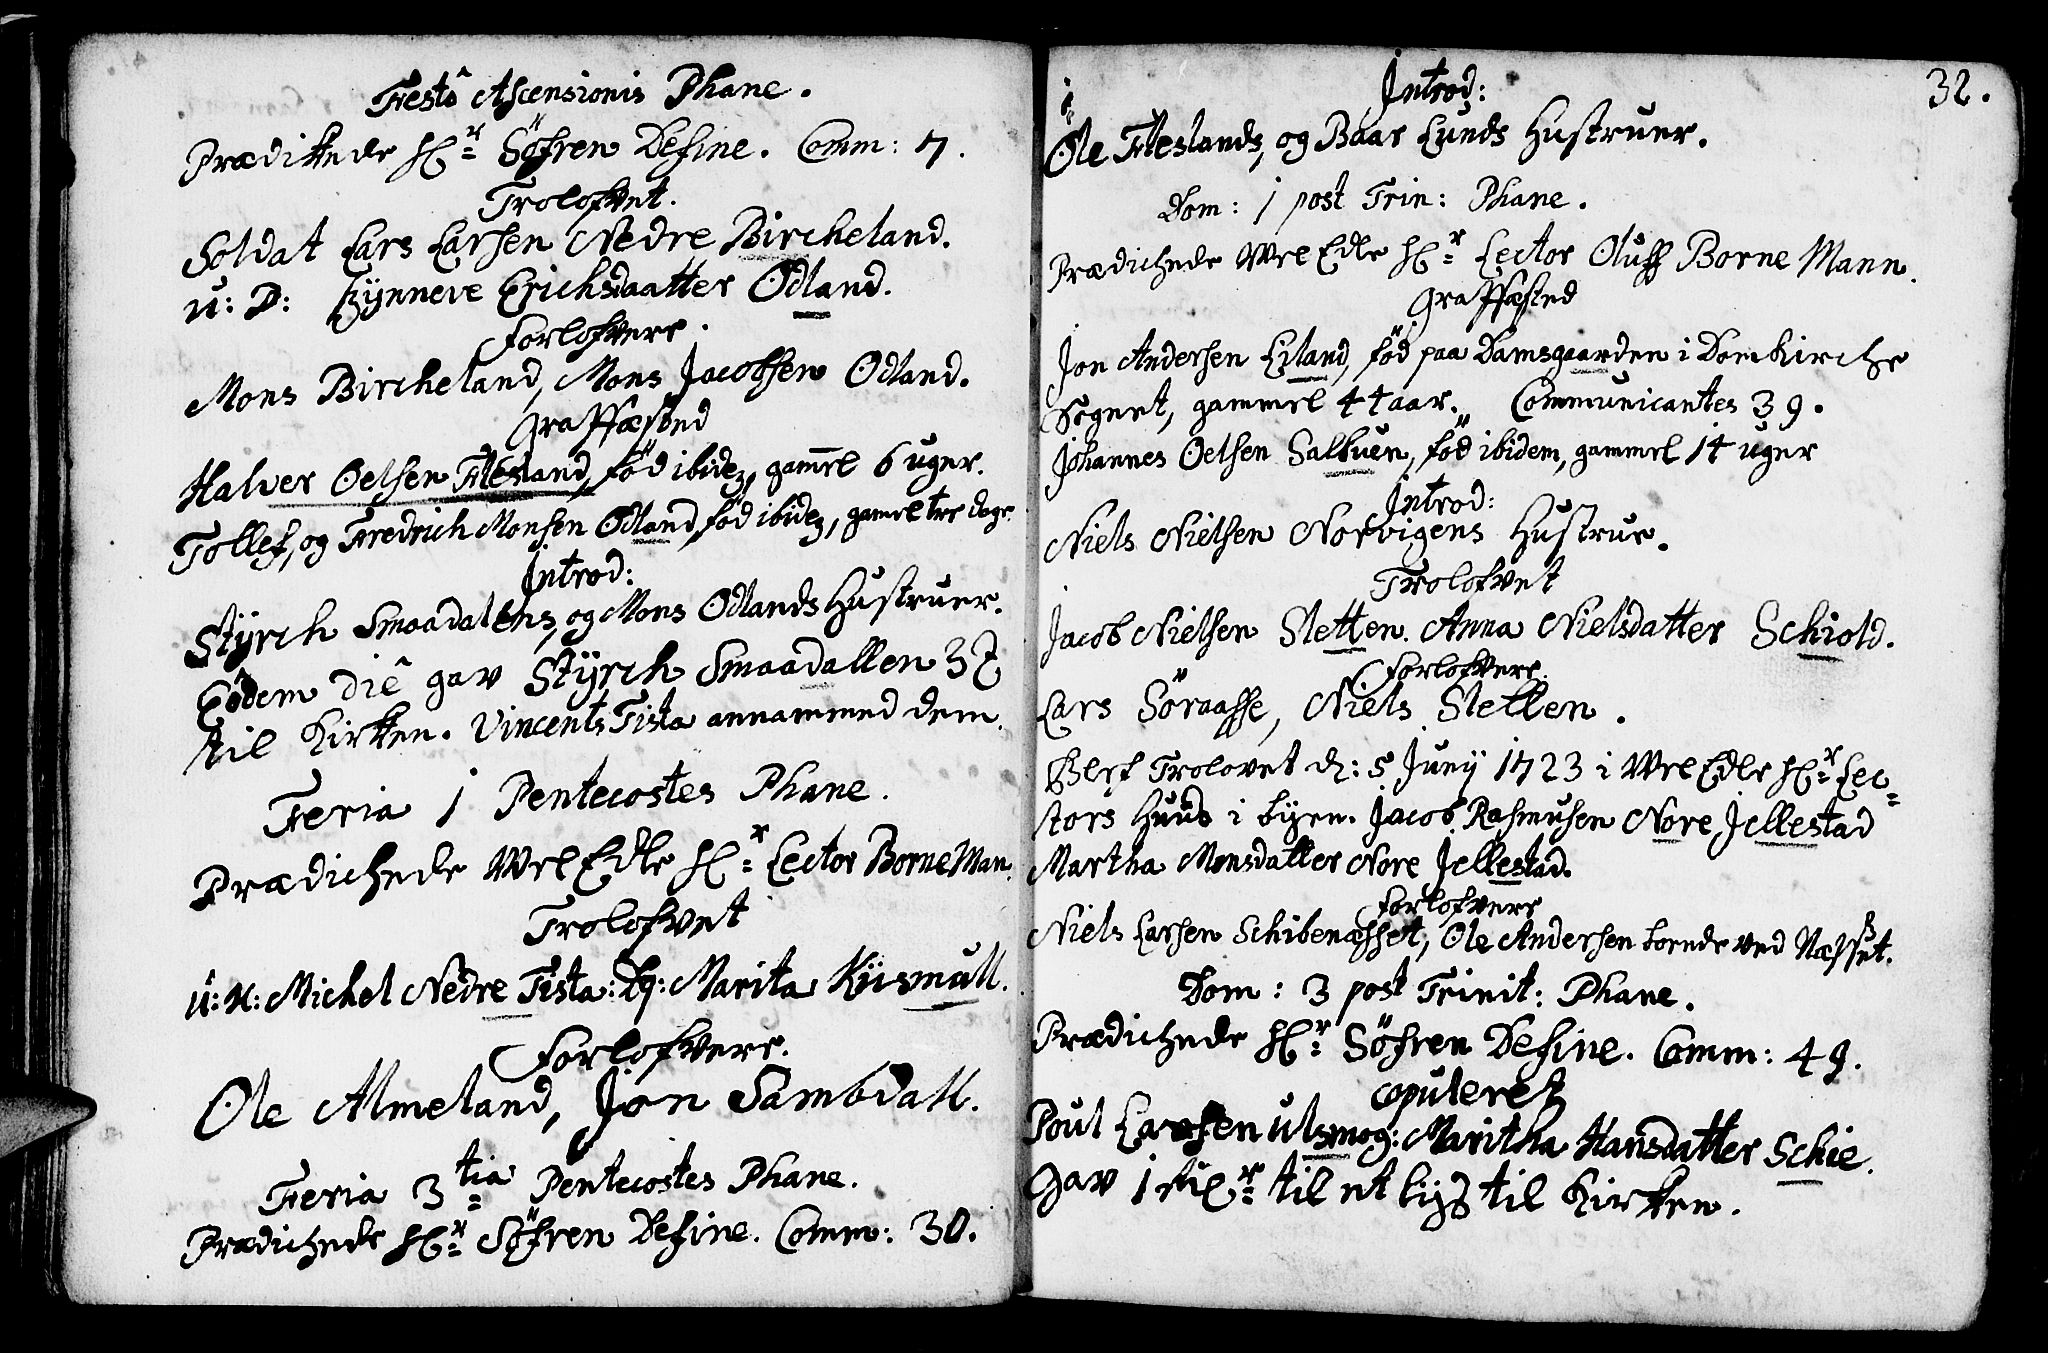 Festo Ascensionis Phane.
Prædikede Hr: Söfren Define. Comm: 7.
Trolofvet.
Soldat Lars Larsen Nedre Bircheland.
u: D: Synneve Erichsdaatter Ødland.
Forlofvere.
Mons Bircheland, Mons Jacobsen Ødland.
Graffæsted
Halver Oelsen Flesland, föd ibidem, gammel 6 uger.
Tollef, og Fredrich Monsen Ødland, föd ibidem, gamel tre dage.
Introd:
Styrch Smaadalens, og Mons Ødlands Hustruer.
Eodem die gav Styrch Smaadallen 3
til Kirken. Vincents Tista annammed dem.
Feria 1 Pentecostes Phane.
Prædichede WelEdle Hr: Lector BorneMan.
Trolofvet
u: K: Michel Nedre Tista: Marita Kiismull.
Forlofvere.
Ole Almeland, Jon Sambdall.
Feria 3tia Pentecostes Phane.
Prædichede Hr: Söfren Define. Comm: 30.
32.
Introd:
Ole Fleslands, og Baar Lunds Hustruer.
Dom: 1 post Trin: Phane.
Prædichede WelEdle Hr: Lector Oluff BorneMann.
Graffæsted
Jon Andersen Liland, föd paa Damsgaarden i DomKirche
Sognet, gammel 44 aar. Communicantes 39.
Johannes Oelsen Salbuen, föd ibidem, gammel 14 uger
Introd:
Niels Nielsen Norvigens Hustrue.
Trolofvet
Jacob Nielsen Sletten. Anna Nielsdatter Schiold.
Forlofvere.
Lars Söraasse, Niels Sletten.
Blef Trolovet d: 5 Juny 1723 i WelEdle Hr: Lec-
tors Huus i byen. Jacob Rasmusen Nore Jellestad
Martha Monsdatter Nore Jellestad.
Forlofvere
Niels Larsen Schibenæsset, Ole Andersen boende ved Næsset.
Dom: 3 post Trinit: Phane.
Prædichede Hr: Söfren Define. Comm: 49.
copuleret
Poul Larsen Ulsmog: Maritha Hansdatter Schie.
Gav 1 til et liys til Kirken.